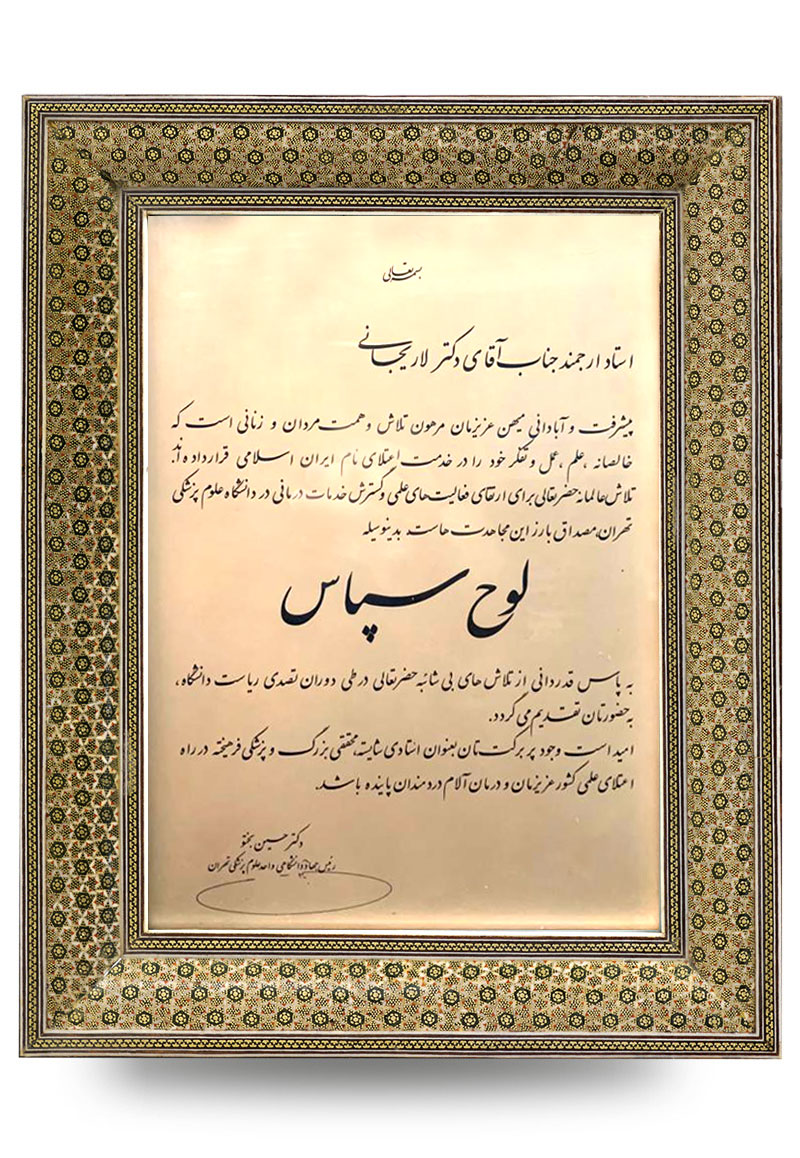 بسمه تعالی
استاد ارجمند جناب آقای دکتر لاریجانی
پیشرفت و آبادانی میهن عزیزمان مرهون تلاش و همت مردان و زنانی است که
خالصانه ، علم ، عمل و تفکر خود را در خدمت اعتلای نام ایران اسلامی قرار داده اند.
تلاش عالمانه حضرتعالی برای ارتقای فعالیت‌های علمی و گسترش خدمات درمانی در دانشگاه علوم پزشکی
تهران، مصداق بارز این مجاهدت هاست. بدینوسیله
لوح سپاس
به پاس قدردانی از تلاش های بی شائبه حضرتعالی در طی دوران تصدی ریاست دانشگاه ،
به حضورتان تقدیم می گردد.
امید است وجود پر برکت‌تان بعنوان استادی شایسته، محققی بزرگ و پزشکی فرهیخته در راه
اعتلای علمی کشور عزیزمان و درمان آلام دردمندان پاینده باشد.
دکتر حسین
رئیس جهاد دانشگاهی واحد علوم پزشکی تهران